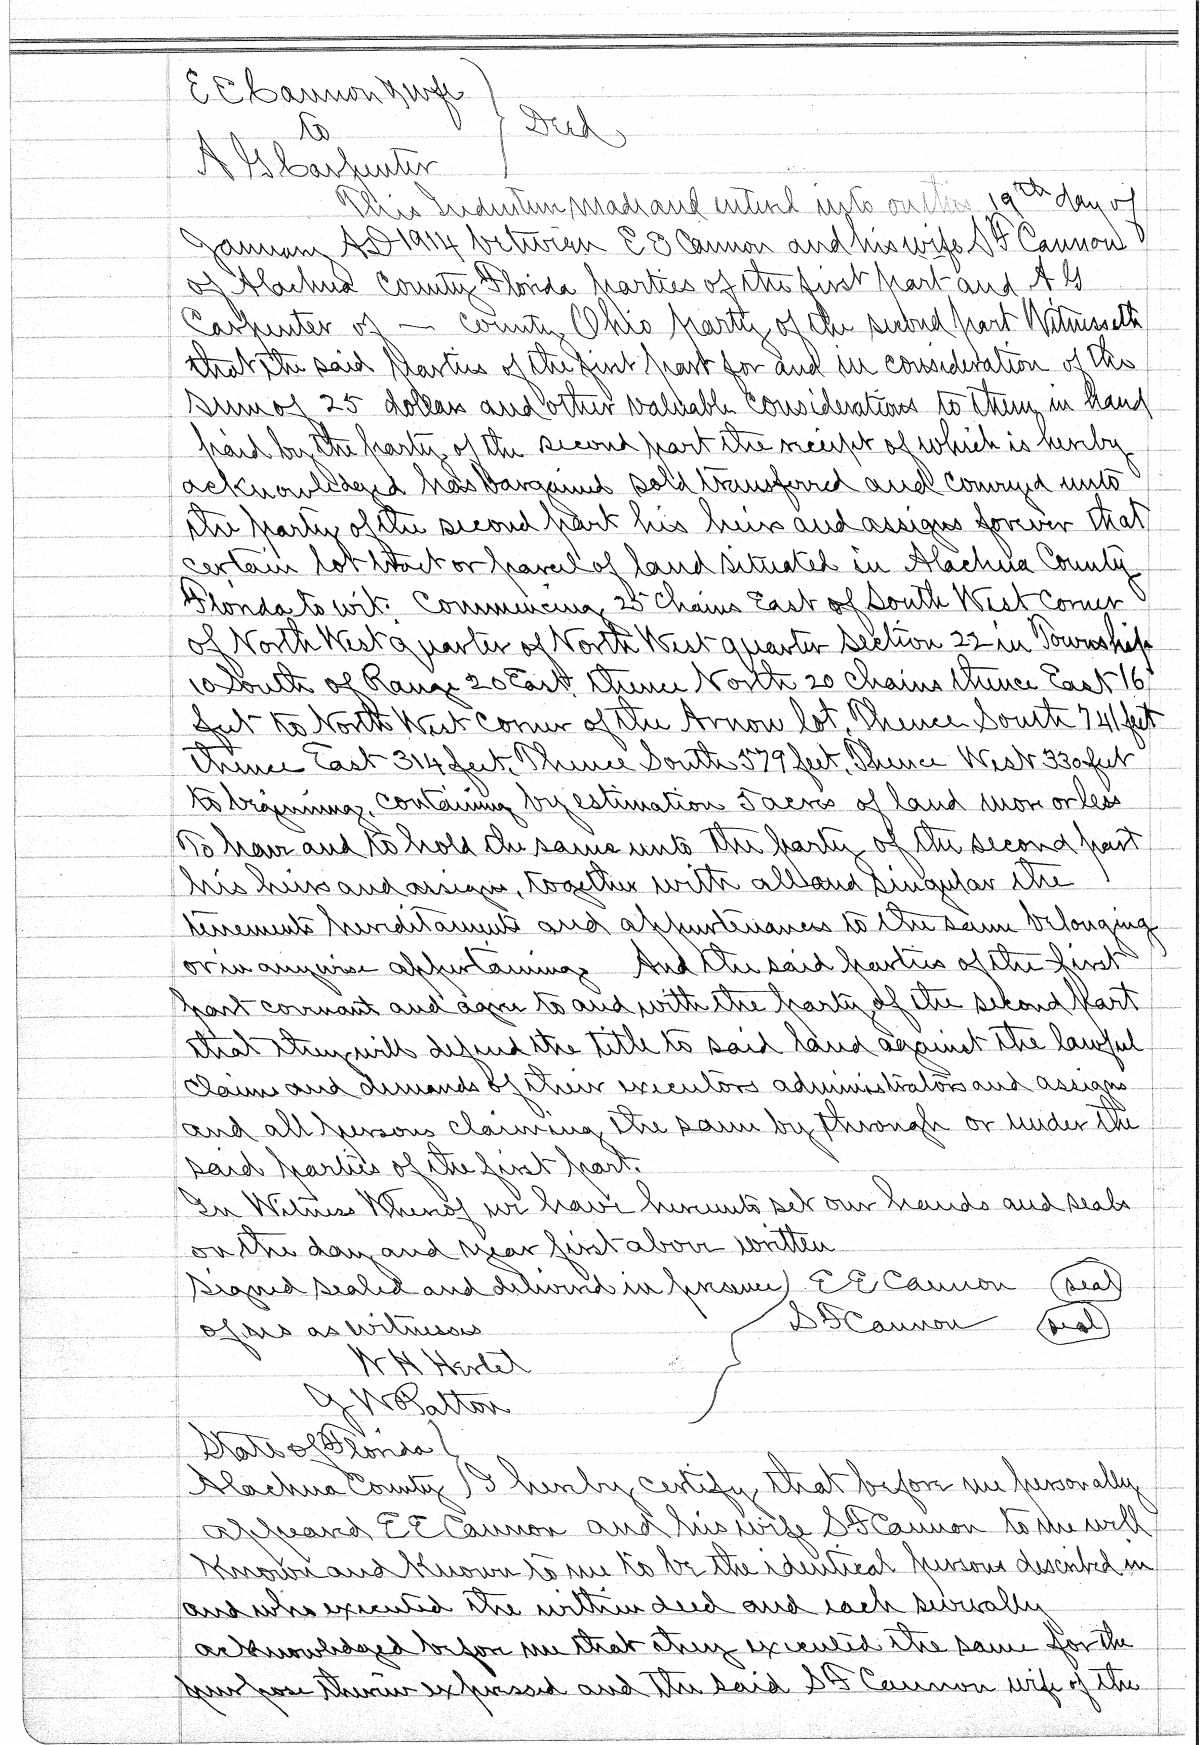 E E Cannon & wife
to } Deed
A G Carpenter
This Indenture, made and entered into on this 19th day of
January A.D 1914 between E E Cannon and his wife S F Cannon
of Alachua County Florida parties of the first part and A G
Carpenter of — County Ohio party of the second part Witnesseth
that the said Parties of the first part for and in consideration of the
sum of 25 dollars and other valuable considerations to them in hand
paid by the party of the second part the receipt of which is hereby
acknowledged has bargained sold transferred and conveyed unto
the party of the second part his heirs and assigns forever that
certain lot tract or parcel of land situated in Alachua County
Florida to wit: Commencing 25 Chains East of South West Corner
of North West quarter of North West quarter Section 22 in Township
10 South of Range 20 East, thence North 20 chains thence East 16
feet to North West corner of the Arnow lot, Thence South 741 feet
thence East 314 feet, Thence South 579 feet, Thence West 330 feet
to beginning, containing by estimation 5 acres of land more or less
To have and to hold the same unto the party of the second part
his heirs and assigns, together with all and singular the
tenements hereditaments and appurtenances to the same belonging
or in anywise appertaining. And the said parties of the first
part covenant and agree to and with the party of the second part
that they will defend the title to said land against the lawful
claims and demands of their executors administrators and assigns
and all persons claiming the same by through or under the
said parties of the first part.
In Witness Whereof we have hereunto set our hands and seals
on the day and year first above written
Signed sealed and delivered in presence } E E Cannon (seal)
of us as witnesses S F Cannon (seal)
W H
G W Patton
State of Florida }
Alachua County } I hereby certify that before me personally
appeared E E Cannon and his wife S F Cannon to me well
known and known to me to be the identical persons described in
and who executed the within deed and each severally
acknowledged before me that they executed the same for the
purpose therein expressed and the said S F Cannon wife of the